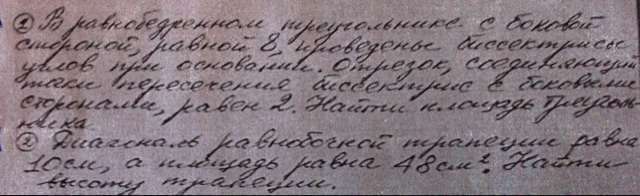 ① В равнобедренном треугольнике с боковой
стороной, равной 8, проведены биссектрисы
углов при основании. Отрезок, соединяющий
точки пересечения биссектрис с боковыми
сторонами, равен 2. Найти площадь треуголь-
ника.
② Диагональ равнобочной трапеции равна
10 см, а площадь равна 48 см². Найти
высоту трапеции.